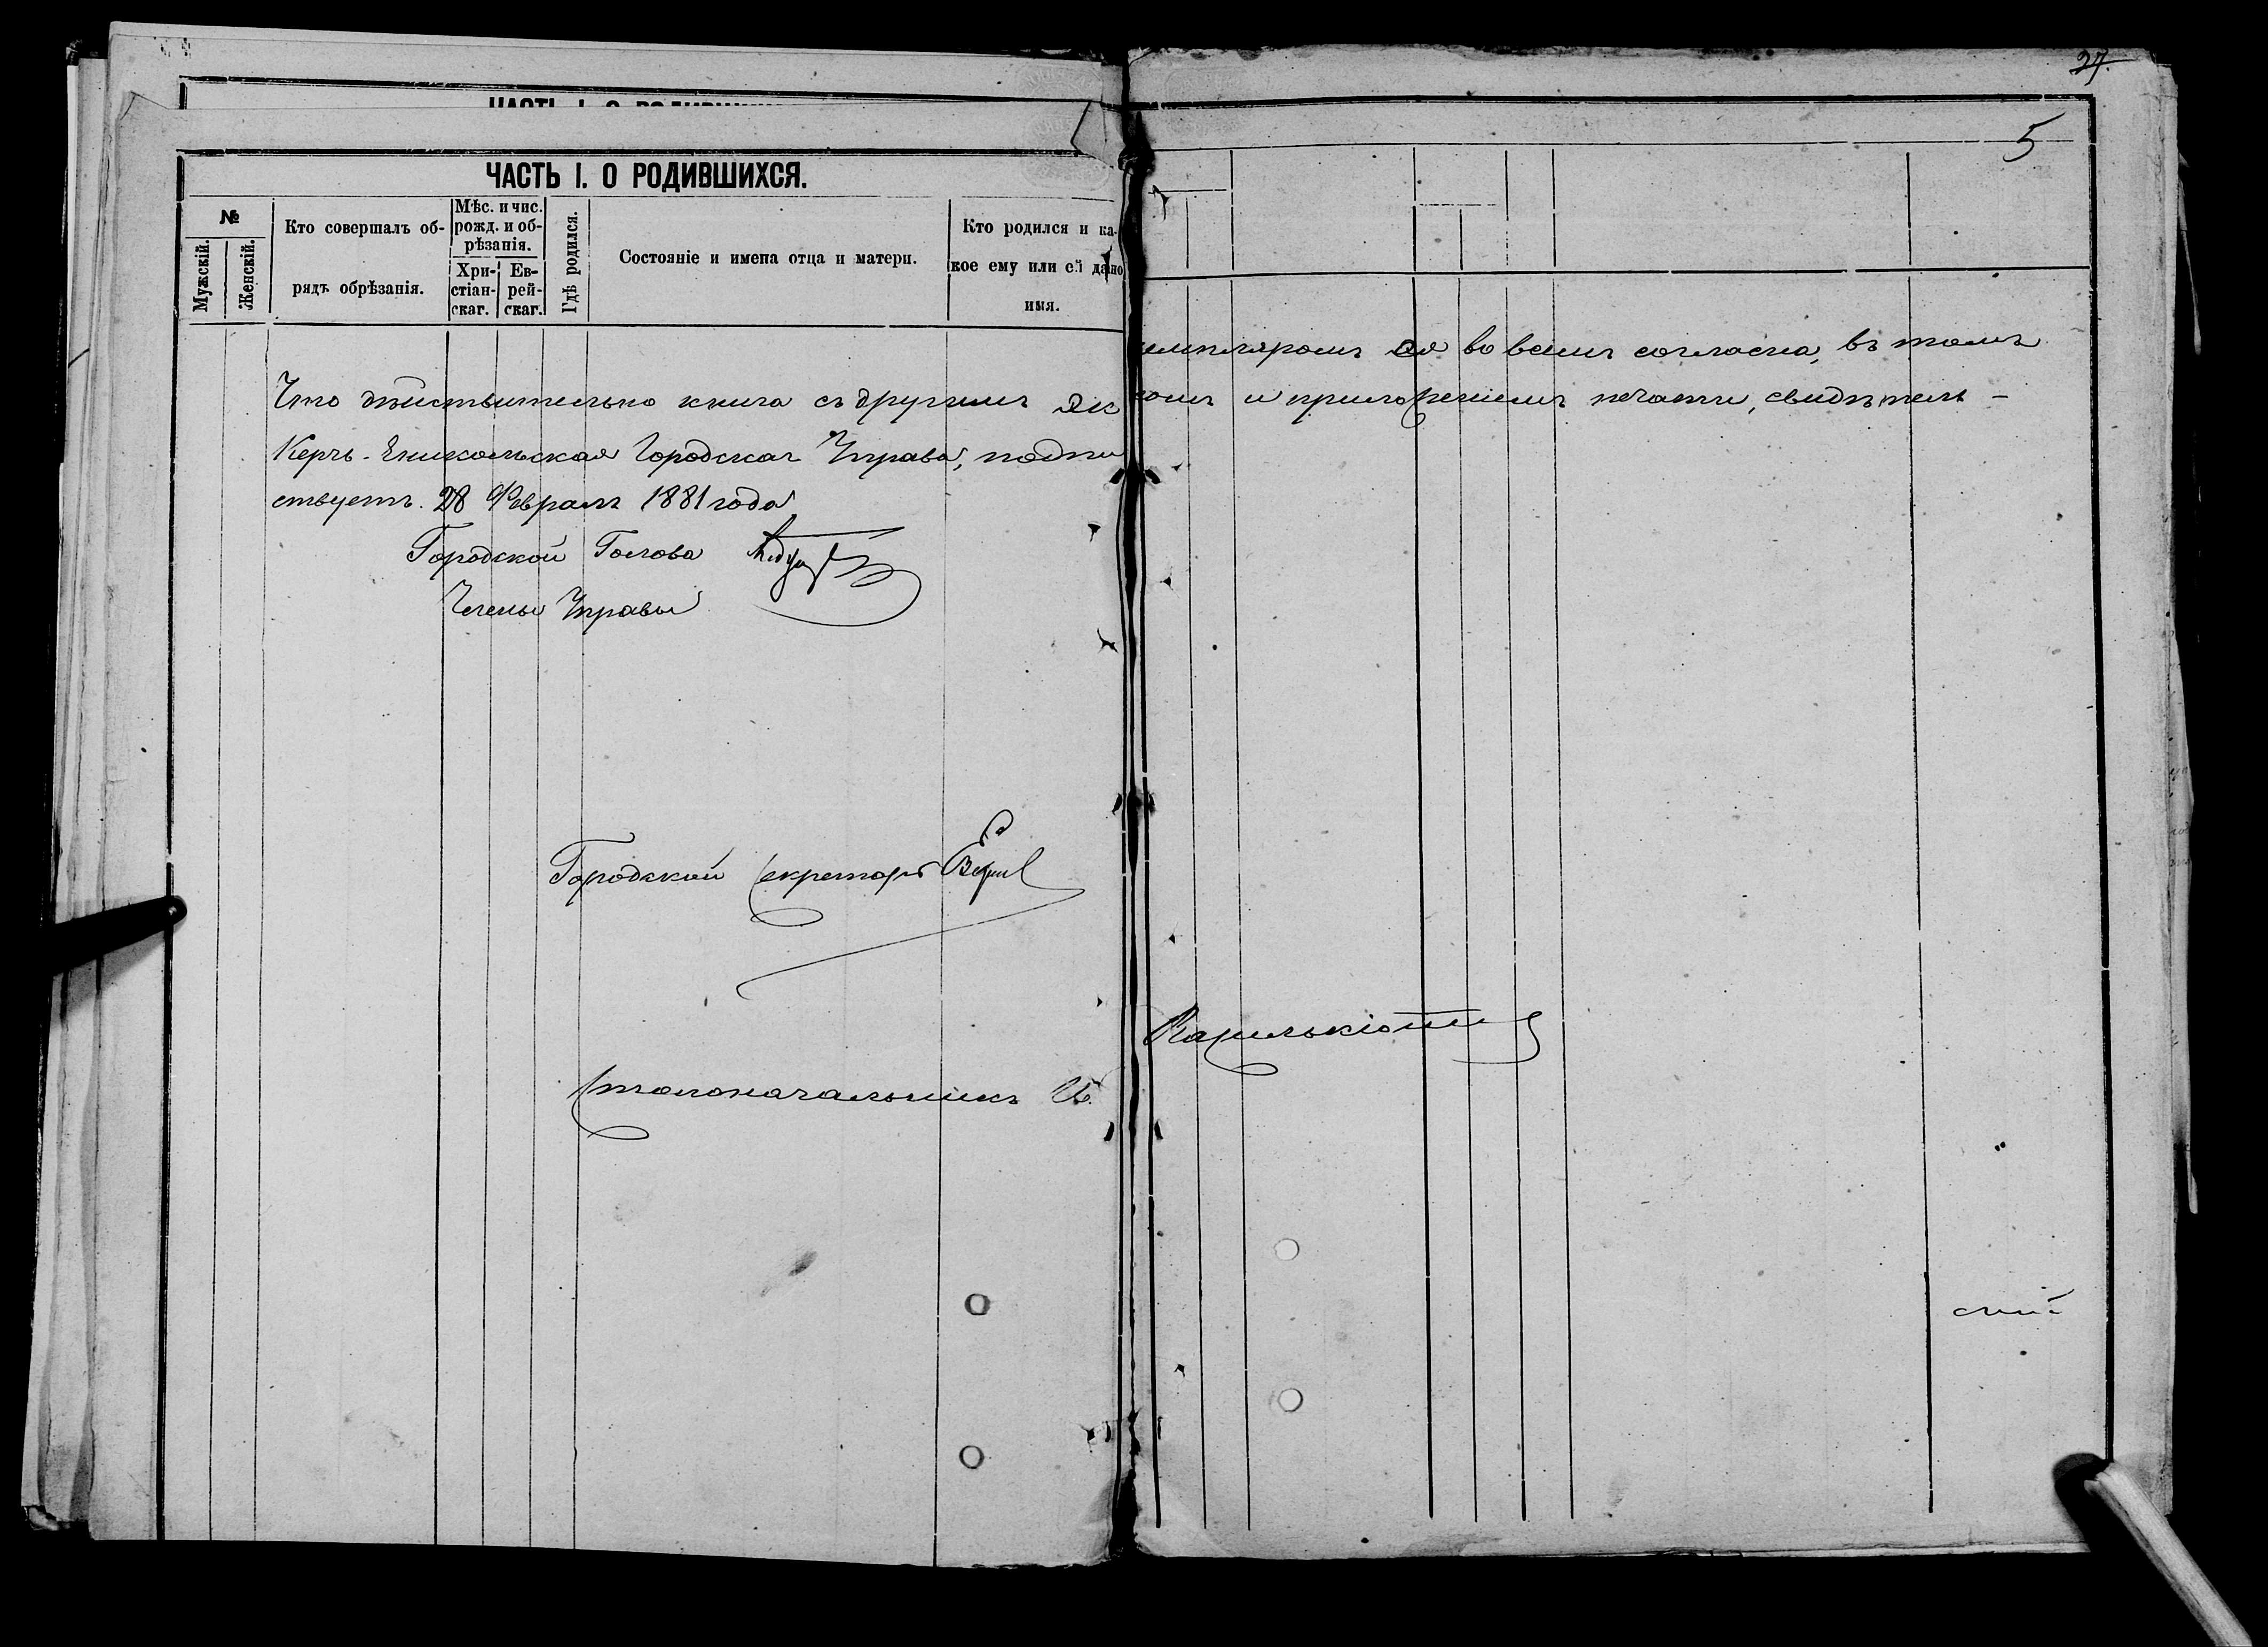 27.
5
ЧАСТЬ I. О РОДИВШИХСЯ.
ЧАСТЬ I. О РОДИВШИХСЯ.
№
Мужскій.
Женскій.
Кто совершалъ об-
рядъ обрѣзанія.
Мѣс. и чис.
рожд. и об-
рѣзанія.
Хри-
стіан-
скаг.
Ев-
рей-
скаг.
Гдѣ родился.
Состояніе и имена отца и матери.
Кто родился и ка-
кое ему или ей дано
имя.
Что дѣйствительно книга съ другимъ экземпляромъ ея во всемъ согласна, въ томъ
Керчь-Еникольская Городская Управа, подписомъ и приложеніемъ печати, свидѣтель-
ствуетъ. 28 Февраля 1881 года
Городской Голова
Члены Управы
Городской Секретарь
Столоначальникъ